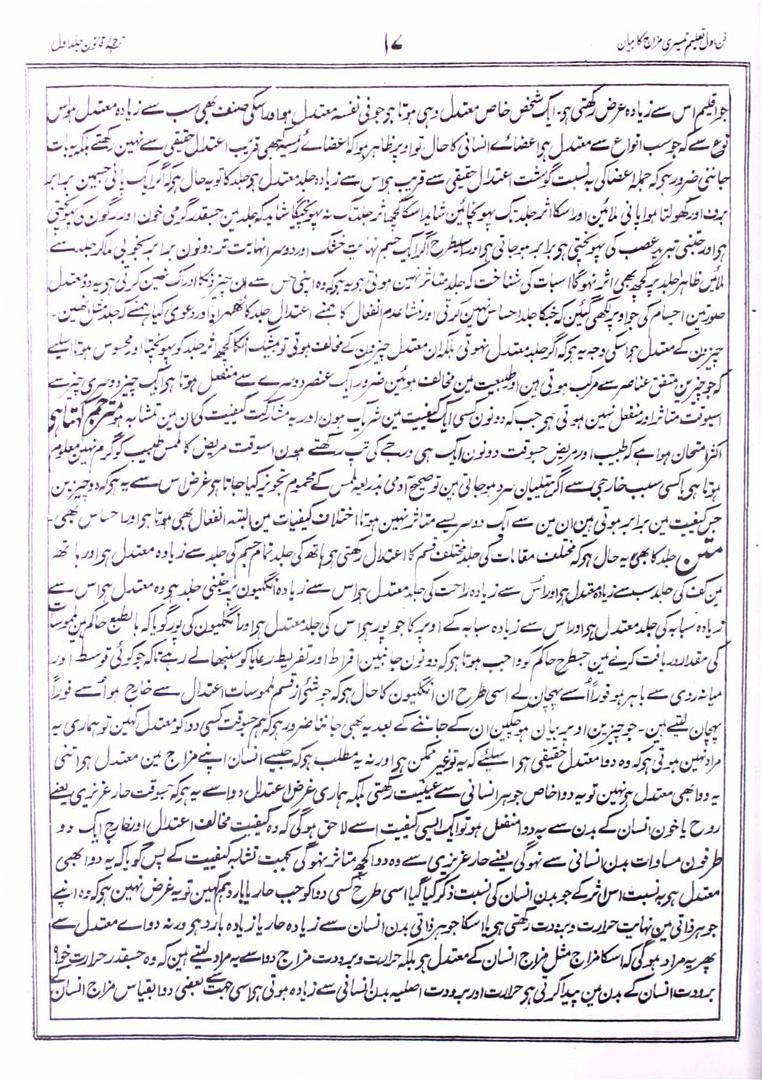 فن اول تعلیم تیسری مزاج کا بیان
۱۷
ترجمۂ قانون جلد اول
جو اقلیم اس سے زیادہ عرض رکھتی ہو۔ ایک شخص خاص معتدل وہی ہوتا ہو جو فی نفسہ معتدل ہو اور اسکی صنف بھی سب سے زیادہ معتدل ہو اس
نوع سے کہ جو سب انواع سے معتدل ہو اعضاے انسانی کا حال تو اوپر ظاہر ہوا کہ اعضاے رئیسہ بھی قریب اعتدال حقیقی سے نہین رکھتے بلکہ یہ بات
جاننی ضرور ہو کہ جملہ اعضا کی بہ نسبت گوشت اعتدال حقیقی سے قریب ہو اس سے زیادہ جلد معتدل ہو جلد کا تو یہ حال ہو کہ اگر ایک پانی جسمین برابر
برف اور کھولتا ہوا پانی ملائین اور اسکا اثر جلد تک پہونچائین شاید اسکا کچھ اثر جلد تک نہ پہونچیگا شاید کہ جلد مین جسقدر گرمی خون اور رگون کی پہونچتی
ہو اور جتنی تبرید عصب کی پہونچتی ہو برابر ہو جاتی ہو اور اسیطرح اگر ایک جسم نہایت خشک اور دوسرا نہایت تر دونون برابر بخوبی ملا کر جلد سے
ملائین ظاہرا جلد پر کچھ بھی اثر نہوگا اس بات کی شناخت کہ جلد متاثر نہین ہوتی ہو یہ ہو کہ وہ اپنی حس سے ان چیزونکا ادراک نہین کرتی ہو یہ دو معتدل
صورتین اجسام کی جو اوپر لکھی گئین کہ جنکا جلد احساس نہین کرتی اور منشا عدم انفعال کا ہمنے اعتدال جلد کا ٹھہرایا اور دعوی کیا ہمنے کہ جلد مثل انھین۔
چیزون کے معتدل ہو اسکی وجہ یہ ہو کہ اگر جلد معتدل نہوتی بلکہ ان معتدل چیزون کے مخالف ہوتی تو بیشک انکا کچھ اثر جلد کو پہونچتا اور محسوس ہوتا اسلیے
کہ جو چیزین متفق عناصر سے مرکب ہوتی ہین اور طبیعت مین مخالف ہوئین ضرور ایک عنصر دوسرے سے منفعل ہوتا ہو ایک چیز دوسری چیز سے
اسیوقت متاثر اور منفعل نہین ہوتی ہو جب کہ دونون کسی ایک کیفیت مین شریک ہون اور یہ مشارکت کیفیت کی ان مین تشابہ ہو مترجم کہتا ہی
اکثر امتحان ہوا ہے کہ طبیب اور مریض جسوقت دونون ایک ہی درجے کی تپ رکھتے ہون اسوقت مریض کا لمس طبیب کو گرم نہین معلوم
ہوتا ہو یا کسی سبب خارجی سے اگر ہتیلیان سرد ہو جاتی ہین تو صحیح آدمی بذریعہ لمس کے محموم تجویز کیا جاتا ہو غرض اس سے یہ ہو کہ دو چیزین
جس کیفیت مین برابر ہوتی ہین ان مین سے ایک دوسرے سے متاثر نہین ہوتا اختلاف کیفیات مین البتہ انفعال بھی ہوتا ہو اور احساس بھی۔
متن جلد کا بھی یہ حال ہو کہ مختلف مقامات کی جلد مختلف قسم کا اعتدال رکھتی ہو ہاتھ کی جلد تمام جسم کی جلد سے زیادہ معتدل ہو اور ہاتھ
مین کف کی جلد سب سے زیادہ معتدل ہو اور اس سے زیادہ راحت کی جلد معتدل ہو اس سے زیادہ انگلیون پر جتنی جلد ہو وہ معتدل ہو اس سے
زیادہ سبابہ کی جلد معتدل ہو اور اس سے زیادہ سبابہ کے اوپر کا جو پور ہو اس کی جلد معتدل ہو اور انگلیون کی پور گویا کہ بالطبع حاکم ہین ملموسات
کی مقدار دریافت کرنے مین جسطرح حاکم کو واجب ہوتا ہو کہ دونون جانبین افراط اور تفریط رعایا کو سنبھالے رہے تاکہ جو کوئی توسط اور
میانہ روی سے باہر ہو فوراً اُسے پہچان لے اسی طرح ان انگلیون کا حال ہو کہ جو شئ از قسم ملموسات اعتدال سے خارج ہو اُسے فوراً
پہچان لیتے ہین۔ جو چیزین اوپر بیان ہو چکین ان کے جاننے کے بعد یہ بھی جاننا ضرور ہو کہ ہم جسوقت کسی دوا کو معتدل کہین تو ہماری یہ
مراد نہین ہوتی ہو کہ وہ دوا معتدل حقیقی ہو اسلیئے کہ یہ تو غیر ممکن ہو اور نہ یہ مطلب ہو کہ جیسے انسان اپنے مزاج مین معتدل ہو اتنی
یہ دوا بھی معتدل ہو نہین تو یہ دوا خاص جوہر انسانی سے عینیت رکھتی بلکہ ہماری غرض اعتدال دوا سے یہ ہو کہ جسوقت حار غریزی یعنے
روح یا خون انسان کے بدن سے یہ دوا منفعل ہو تو ایک ایسی کیفیت اسے لاحق ہوگی کہ وہ کیفیت مخالف اعتدال اور خارج ایک دو
طرفون مساوات بدن انسانی سے نہوگی یعنے حار غریزی سے وہ دوا کچھ متاثر نہوگی بجہت تشابہ کیفیت کے پس گویا کہ یہ دوا بھی
معتدل ہو بہ نسبت اس اثر کے جو بدن انسان کی نسبت ذکر کیا گیا اسی طرح کسی دوا کو جب حار یا بارد ہم کہین تو یہ غرض نہین ہو کہ وہ اپنے
جوہر ذاتی مین نہایت حرارت و برودت رکھتی ہو یا اسکا جوہر ذاتی بدن انسان سے زیادہ حار یا زیادہ بارد ہو ورنہ دواے معتدل سے
پھر یہ مراد ہوگی کہ اسکا مزاج مثل مزاج انسان کے معتدل ہو بلکہ حرارت و برودت مزاج دوا سے یہ مراد لیتے ہین کہ وہ جسقدر حرارت خواہ
برودت انسان کے بدن مین پیدا کرتی ہو حرارت اور برودت اصلیہ بدن انسانی سے زیادہ ہوتی ہو اسی جہت سے بعضی دوا بقیاس مزاج انسان کے